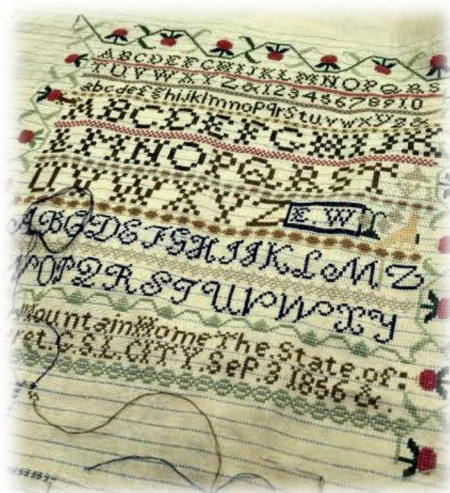 ABCDEFGHIJKLMNOPQRS
TUVWXYZ&12345678910
abcdefghijklmnopqrstuvwxyz&
ABCDEFGHIJK
LMNOPQRST
UVWXYZ E.W
ABCDEFGHIJKLMZ
NOPQRSTUVWXY
Mountain Home The State of:
ret. G.S.L.CITY. SeP. 3 1856 &.